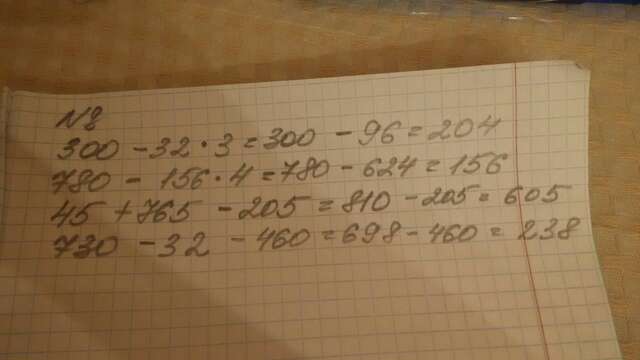 №8
300 - 32 · 3 = 300 - 96 = 204
780 - 156 · 4 = 780 - 624 = 156
45 + 765 - 205 = 810 - 205 = 605
730 - 32 - 460 = 698 - 460 = 238